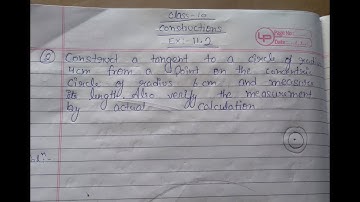 Class-10
Constructions
Ex:- 11.2
Q Construct a tangent to a circle of radiu
4cm from a point on the concentric
Circle of radius 6 cm and measure
its length. Also verify the measurement
by actual calculation